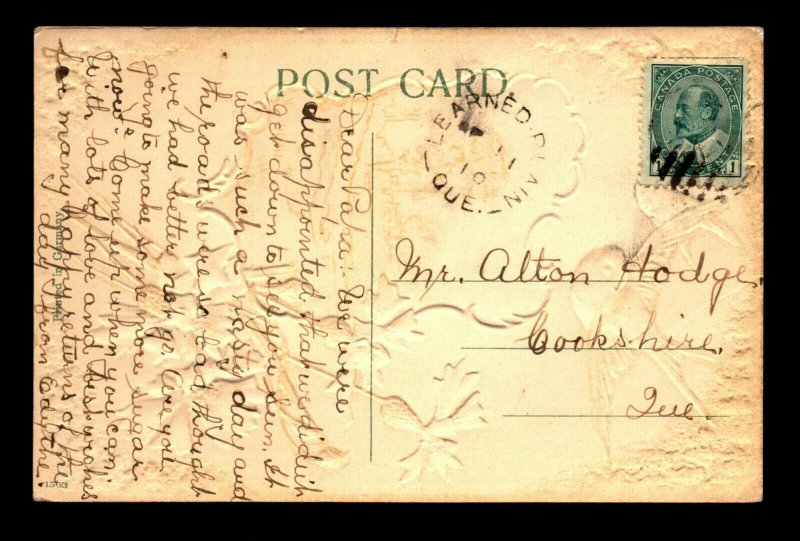 POST CARD
LEARNED PLAIN
AP 11
10
QUE.
CANADA POSTAGE
1 1
Mr. Alton Hodge,
Cookshire,
Que.
Dear Papa: We were
disappointed that we didn't
get down to see you Sun. It
was such a nasty day and
the roads were so bad thought
we had better not go. Are you
going to make some more sugar
now? Come up when you can.
With lots of love and best wishes
for many happy returns of the
day, from Edythe.
Printed in Germany
1563